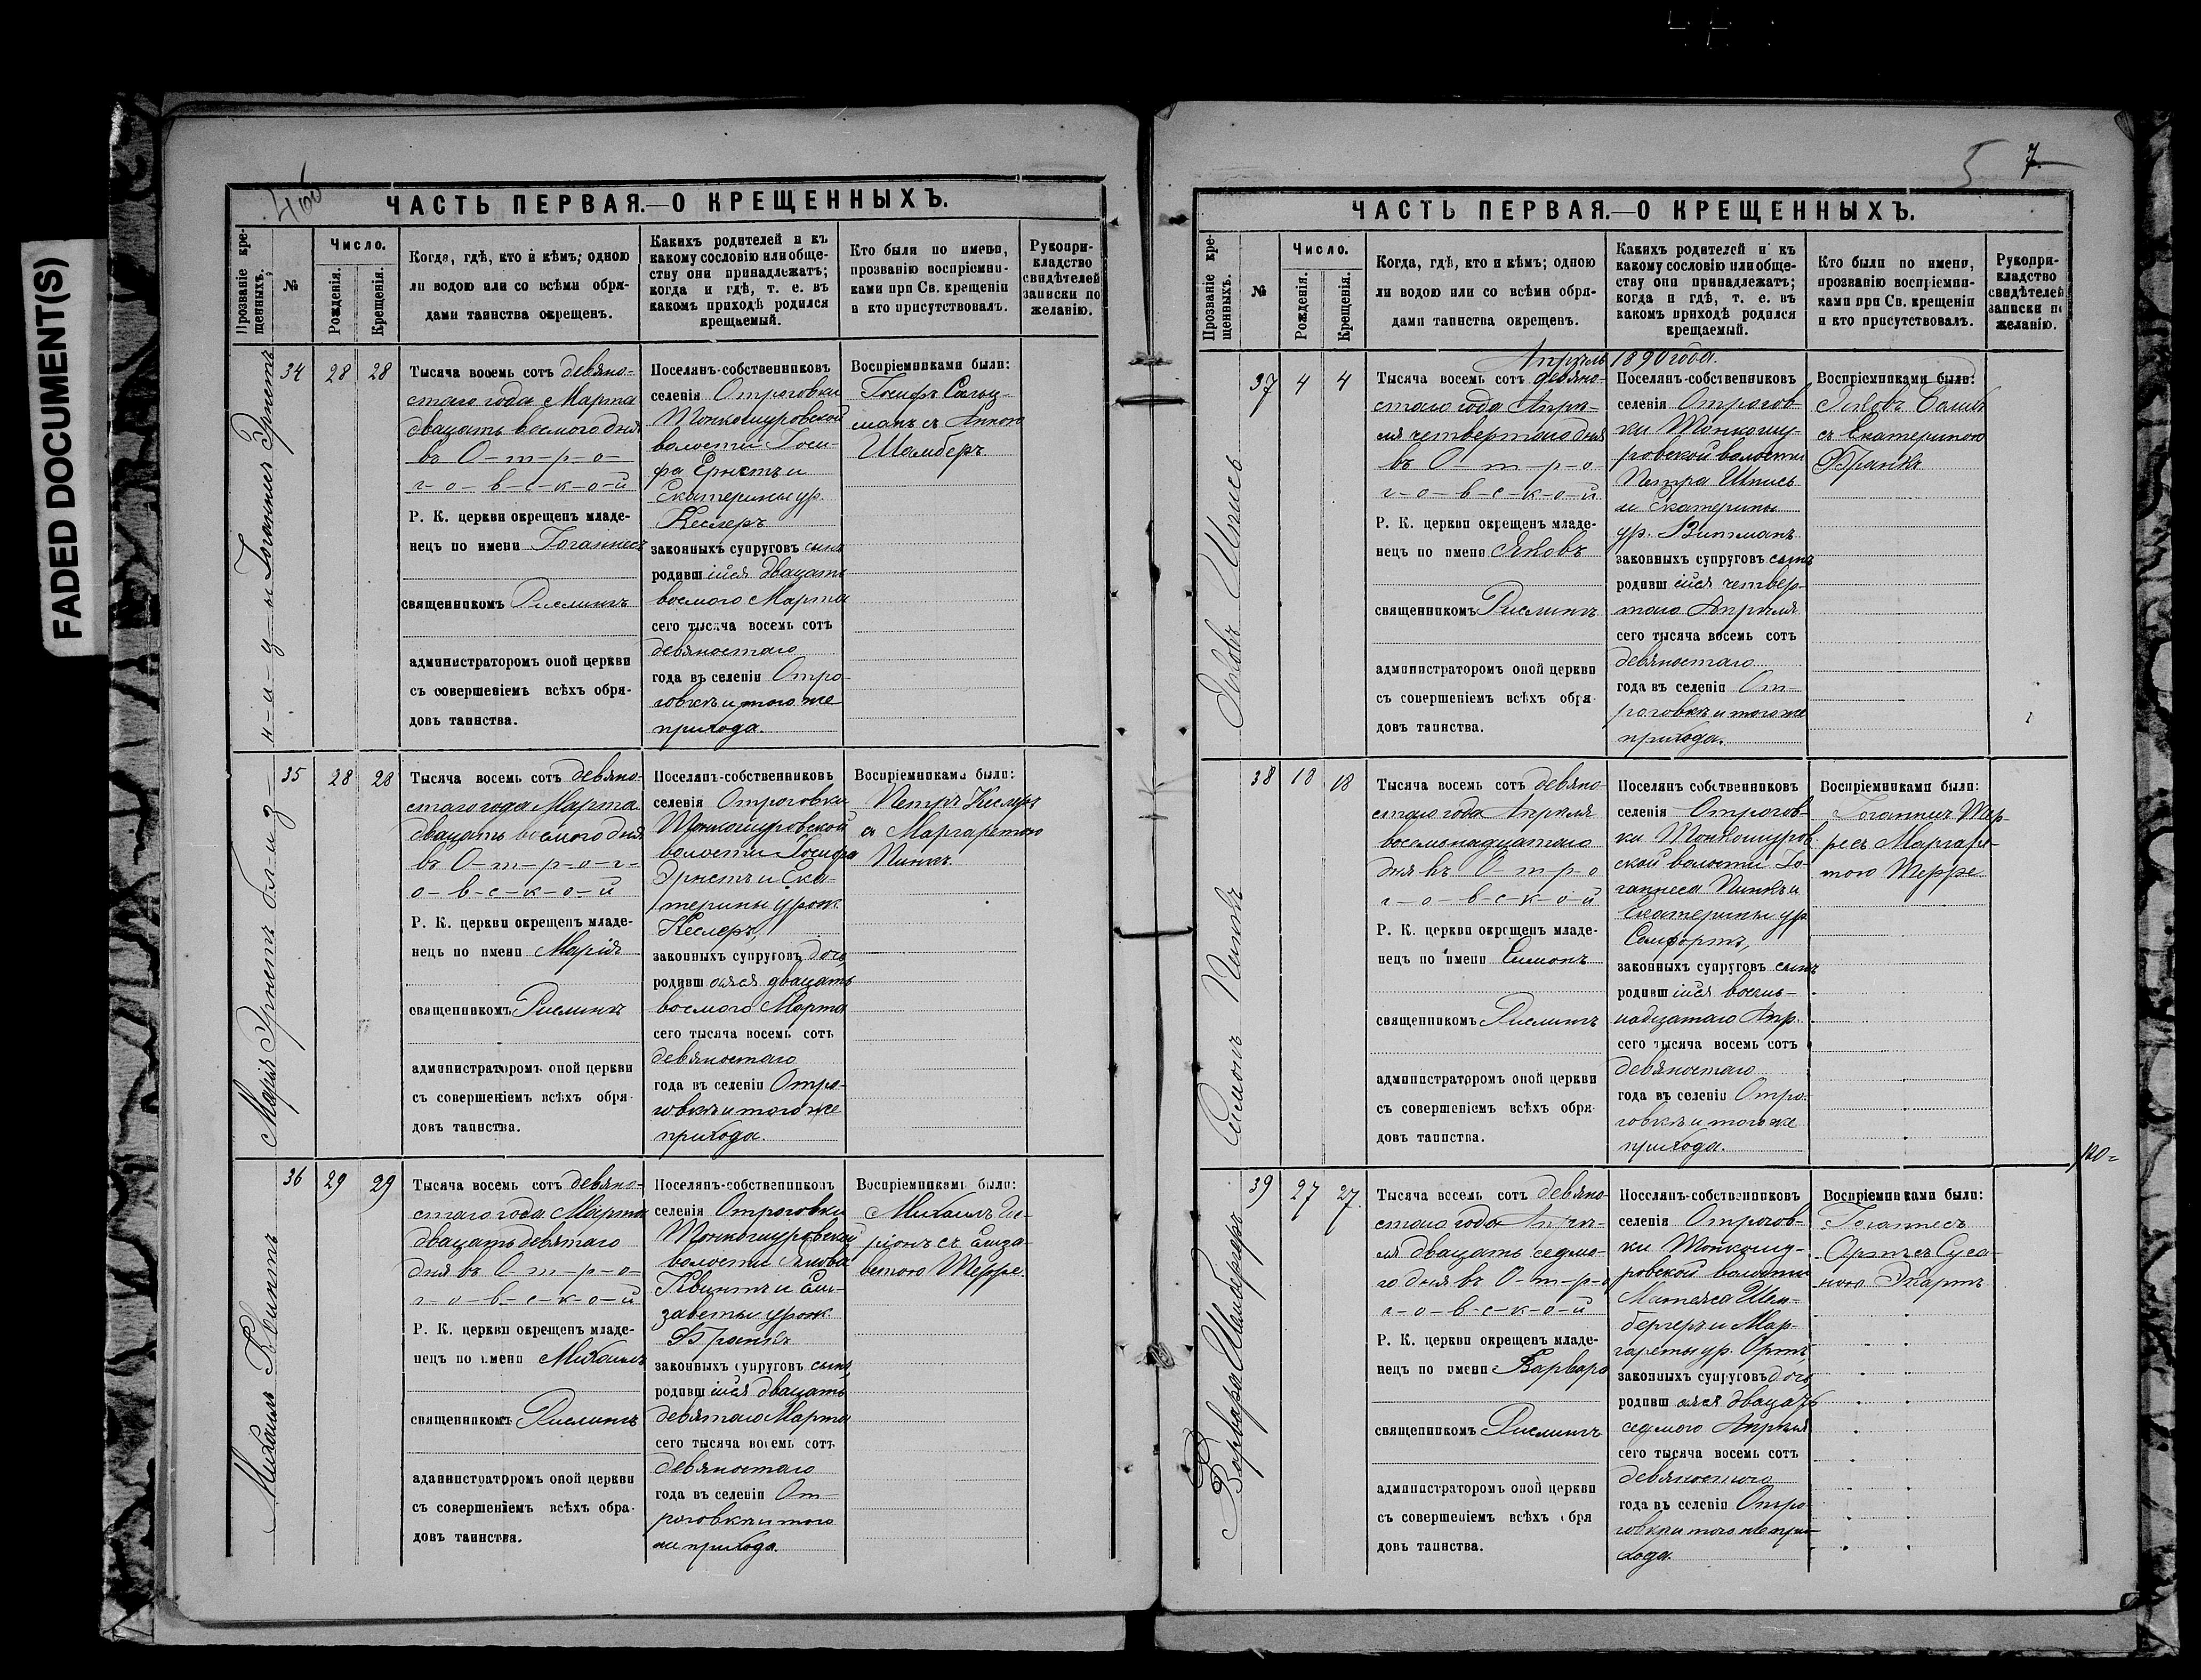 FADED DOCUMENT(S)
ЧАСТЬ ПЕРВАЯ.—О КРЕЩЕННЫХЪ.
Прозваніе кре-
щенныхъ.
№
Число.
Рожденія.
Крещенія.
Когда, гдѣ, кто и кѣмъ; одною
ли водою или со всѣми обря-
дами таинства окрещенъ.
Какихъ родителей и къ
какому сословію или обще-
ству они принадлежатъ;
когда и гдѣ, т. е. въ
какомъ приходѣ родился
крещаемый.
Кто были по имени,
прозванію воспріемни-
ками при Св. крещеніи
и кто присутствовалъ.
Рукопри-
кладство
свидѣтелей
записки по
желанію.
н-а-ц-ы Іоганнес Эрнстъ
34
28
28
Тысяча восемь сотъ девяно-
стаго года Марта
двацать восмого дня
въ О-т-р-о-
г-о-в-с-к-о-й
Р. К. церкви окрещенъ младе-
нецъ по имени Іоганнесъ
священникомъ Рислингъ
администраторомъ оной церкви
съ совершеніемъ всѣхъ обря-
довъ таинства.
Поселянъ-собственниковъ
селенія Отроговки
Тонкошуровской
волости Іоси-
фа Ернстъ и
Екатерины ур.
Кеслеръ
законныхъ супруговъ сынъ
родившійся двацать
восмого Марта
сего тысяча восемь сотъ
девяностаго
года въ селеніи Отро-
говкѣ и того же
прихода.
Воспріемниками были:
Іосифъ
съ Анною
Шамберъ
Марія Эрнстъ бл-и-з-
35
28
28
Тысяча восемь сотъ девяно-
стаго года Марта
двацать восмого дня
въ О-т-р-о-г-
о-в-с-к-о-й
Р. К. церкви окрещенъ младе-
нецъ по имени Марія
священникомъ Рислингъ
администраторомъ оной церкви
съ совершеніемъ всѣхъ обря-
довъ таинства.
Поселянъ-собственниковъ
селенія Отроговки
Тонкошуровской
волости Іосифа
Эрнстъ и Ека-
терины урож.
Кеслеръ,
законныхъ супруговъ дочь,
родившаяся двацать
восмого Марта
сего тысяча восемь сотъ
девяностаго
года въ селеніи Отро-
говкѣ и того же
прихода.
Воспріемниками были:
Петръ Кеслеръ
съ Маргаретою
Пинкъ.
Михаилъ Квинтъ
36
29
29
Тысяча восемь сотъ девяно-
стаго года Марта
двацать девятаго
дня въ О-т-р-о-
г-о-в-с-к-о-й
Р. К. церкви окрещенъ младе-
нецъ по имени Михаилъ
священникомъ Рислингъ
администраторомъ оной церкви
съ совершеніемъ всѣхъ обря-
довъ таинства.
Поселянъ-собственниковъ
селенія Отроговки
Тонкошуровской
волости Якова
Квинтъ и Ели-
заветы урож.
Франкъ
законныхъ супруговъ сынъ,
родившійся двацать
девятаго Марта
сего тысяча восемь сотъ
девяностаго
года въ селеніи От-
роговкѣ и того
же прихода.
Воспріемниками были:
Михаилъ
съ Елиза-
ветою Шерре.
5 7.
ЧАСТЬ ПЕРВАЯ.—О КРЕЩЕННЫХЪ.
Прозваніе кре-
щенныхъ.
№
Число.
Рожденія.
Крещенія.
Когда, гдѣ, кто и кѣмъ; одною
ли водою или со всѣми обря-
дами таинства окрещенъ.
Какихъ родителей и къ
какому сословію или обще-
ству они принадлежатъ;
когда и гдѣ, т. е. въ
какомъ приходѣ родился
крещаемый.
Кто были по имени,
прозванію воспріемни-
ками при Св. крещеніи
и кто присутствовалъ.
Рукопри-
кладство
свидѣтелей
записки по
желанію.
Апрѣль 1890 года.
Яковъ Шписъ
37
4
4
Тысяча восемь сотъ девяно-
стаго года Апрѣ-
ля четвертаго дня
въ О-т-р-о-
г-о-в-с-к-о-й
Р. К. церкви окрещенъ младе-
нецъ по имени Яковъ
священникомъ Рислингъ
администраторомъ оной церкви
съ совершеніемъ всѣхъ обря-
довъ таинства.
Поселянъ-собственниковъ
селенія Отрогов-
ки Тонкошу-
ровской волости
Петра Шписъ
и Екатерины
ур. Витманъ
законныхъ супруговъ сынъ
родившійся четвер-
таго Апрѣля
сего тысяча восемь сотъ
девяностаго
года въ селеніи От-
роговкѣ и того же
прихода.
Воспріемниками были:
Яковъ
съ Екатериною
Франкъ
Симонъ Пинкъ
38
18
18
Тысяча восемь сотъ девяно-
стаго года Апрѣля
восемнадцатаго
дня въ О-т-р-о
г-о-в-с-к-о-й
Р. К. церкви окрещенъ младе-
нецъ по имени Симонъ
священникомъ Рислингъ
администраторомъ оной церкви
съ совершеніемъ всѣхъ обря-
довъ таинства.
Поселянъ собственниковъ
селенія Отрогов-
ки Тонкошуров-
ской волости Іо-
ганнеса Пинкъ и
Екатерины ур
законныхъ супруговъ сынъ
родившійся восем-
надцатаго Апр.
сего тысяча восемь сотъ
девяностаго
года въ селеніи Отро-
говкѣ и того же
прихода.
Воспріемниками были:
Іоганнесъ Шер-
ресъ Маргаре-
тою Шерре.
120=
Варвара Шамбергеръ
39
27
27.
Тысяча восемь сотъ девяно-
стаго года Апрѣ-
ля двацать седмо-
го дня въ О-т-р-о
г-о-в-с-к-о-й
Р. К. церкви окрещенъ младе-
нецъ по имени Варвара
священникомъ Рислингъ
администраторомъ оной церкви
съ совершеніемъ всѣхъ обря
довъ таинства.
Поселянъ-собственниковъ
селенія Отрогов-
ки Тонкошу-
ровской волости
Матеяса Шам-
бергеръ и Мар-
гареты ур. Ортъ,
законныхъ супруговъ дочь,
родившаяся двацать
седмого Апрѣля
сего тысяча восемь сотъ
девяностаго
года въ селеніи Отро-
говкѣ и того же при-
хода.
Воспріемниками были:
Іоганнесъ
Ортъ съ Суса-
ною Экартъ